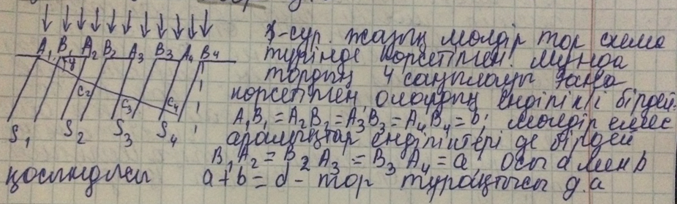 A₁ B₁ A₂ B₂ A₃ B₃ A₄ B₄
φ C₂ C₃ C₄
S₁ S₂ S₃ S₄
-сур. жазық мөлдір тор схема
түрінде көрсетілген. Мұнда
тордың 4 саңылауы ғана
көрсетілген, олардың ендіілікі бірдей.
A₁B₁ = A₂B₂ = A₃B₃ = A₄B₄ = b; мөлдір емес
аралықтар енділіктері де бірдей
B₁A₂ = B₂A₃ = B₃A₄ = a, осы a мен b
қосындысы a+b=d - тор тұрақтысы д.а